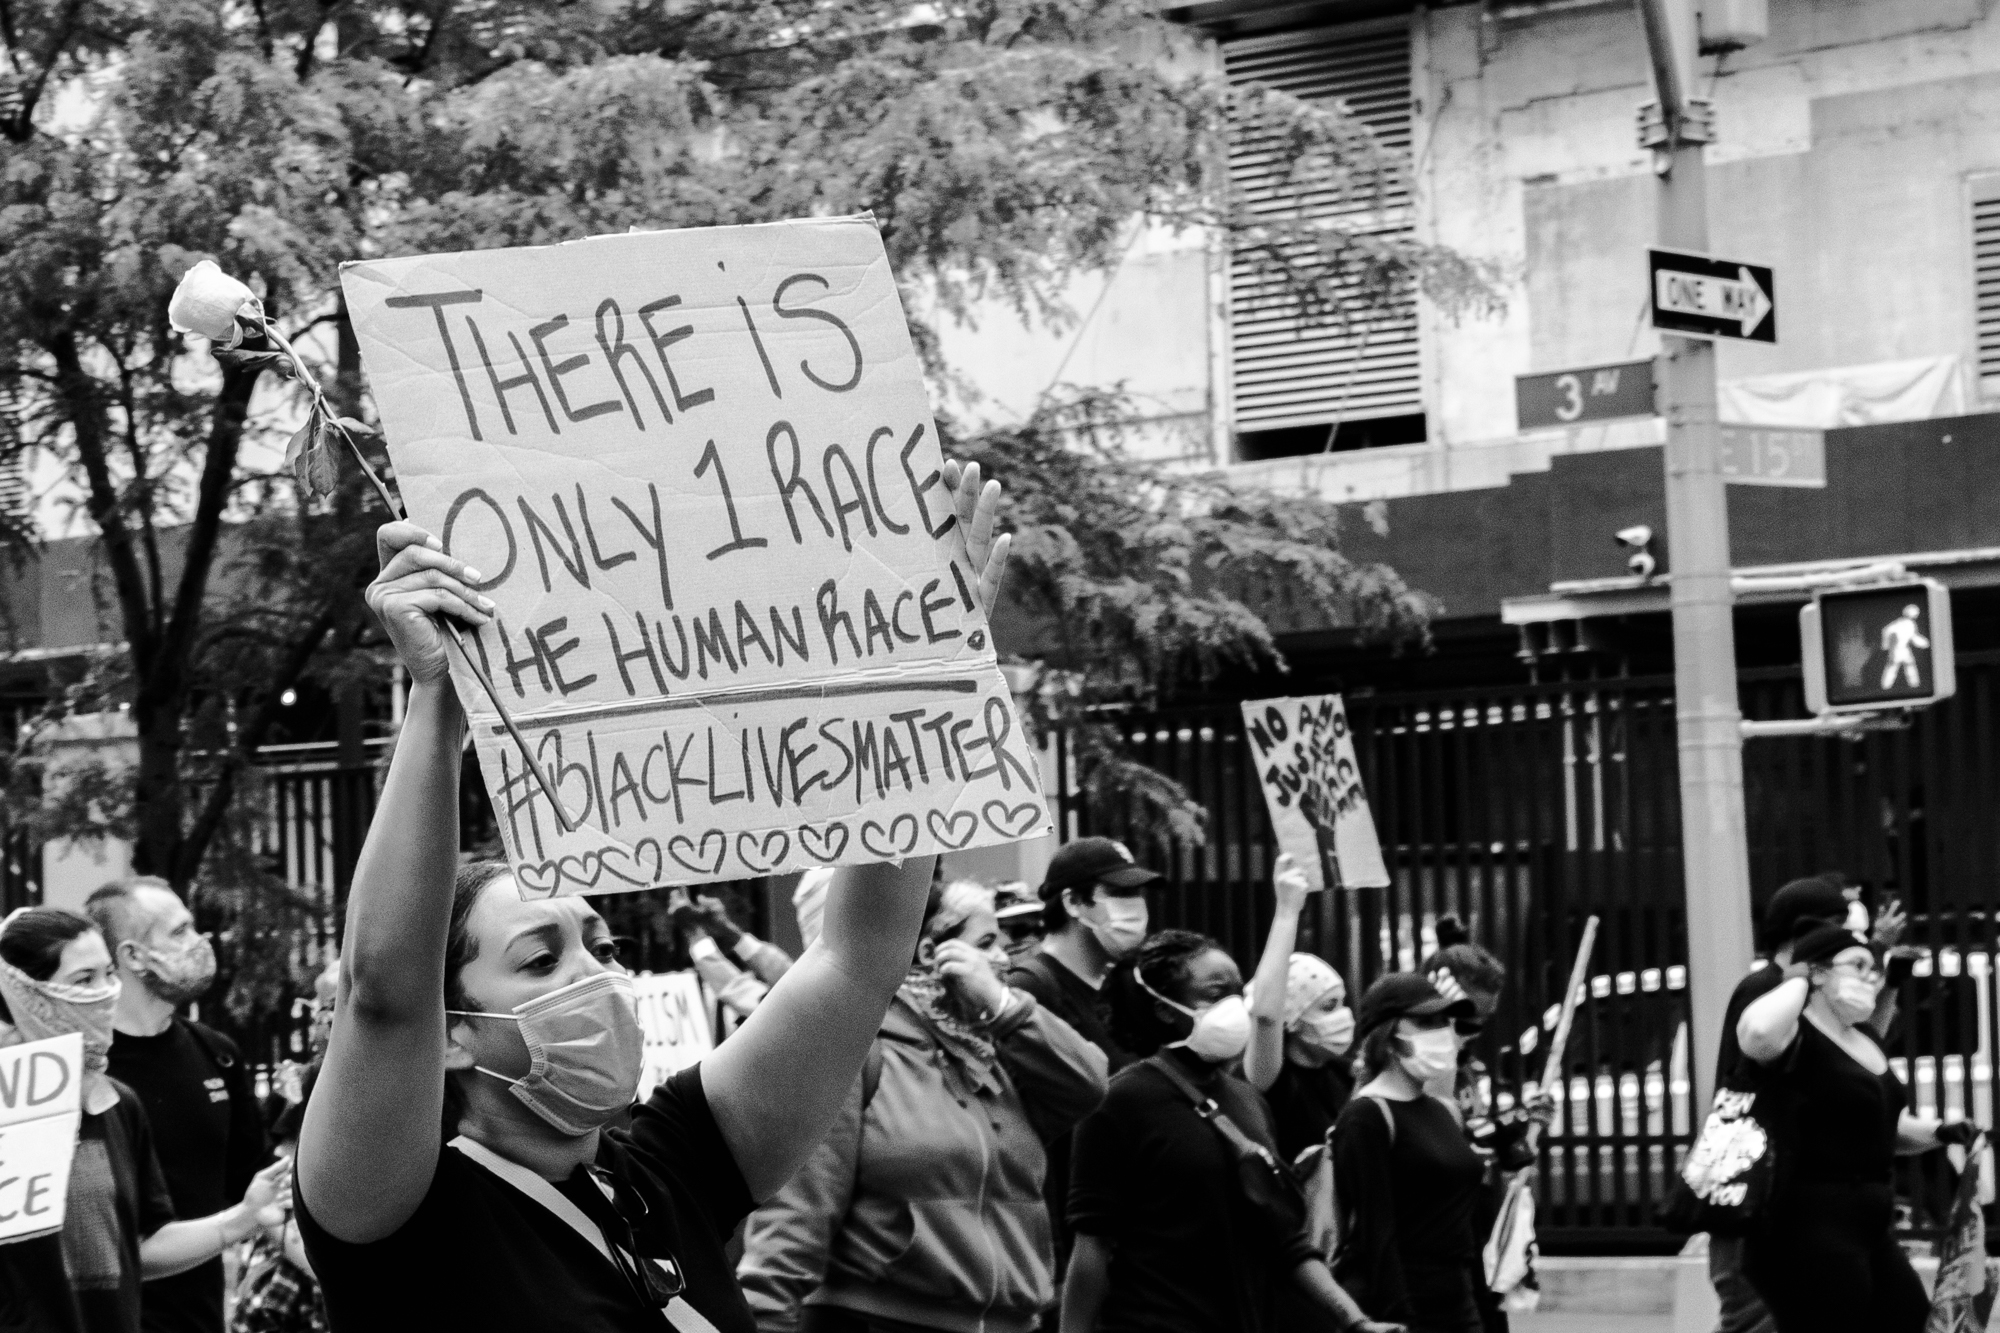 THERE iS
ONLY 1 RACE
THE HUMAN RACE!
#BLACKLiVESMATTER
ONE WAY
3 AV
E 15 ST
NO
JUST
ND
CE
CISM
YOU